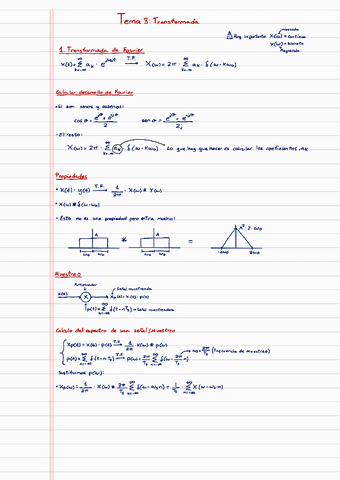 Tema 3: Transformada
⚠ Muy importante X(ω) = continuo
X(ω) = discreto
1. Transformada de Fourier
x(t) = Σ aₖ · e^{jkω₀t} —T.F.→ X(ω) = 2π · Σ aₖ · δ(ω - kω₀)
Calcular desarrollo de Fourier
• Si son senos y cosenos:
cos θ = (e^{jθ} + e^{-jθ})/2   sen θ = (e^{jθ} - e^{-jθ})/2j
- El resto:
X(ω) = 2π · Σ aₖ δ(ω - kω₀) Lo que hay que hacer es calcular los coeficientes, aₖ
Propiedades
• x(t) · y(t) —T.F.→ 1/2π · X(ω) * Y(ω)
• X(ω) * δ(ω - ω₀)
- Esta no es una propiedad pero entra mucho:
A * A = A² · 2·ω₀
-ω₀ ω₀ -ω₀ ω₀ -2ω₀ 2ω₀
Muestreo
Multiplicador
Señal muestreada
x(t) → X → xp(t) = x(t) · p(t)
p(t) = Σ δ(t - nTs) → Señal muestreadora
Cálculo del espectro de una señal/muestreo
xp(t) = x(t) · p(t) —T.F.→ 1/2π · X(ω) * p(ω)
p(t) = Σ δ(t - nTs) —T.F.→ p(ω) = 2π/Ts Σ δ(ω - 2π/Ts n) ωs = 2π/Ts (frecuencia de muestreo)
Sustituimos p(ω):
• Xp(ω) = 1/2π · X(ω) * 2π/Ts Σ δ(ω - ωs n) = 1/Ts · Σ X(ω - ωs n)